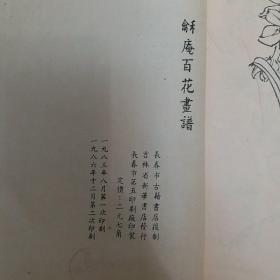 龢庵百花畫譜
長春市古籍書店複制
吉林省新華書店發行
長春市第五印刷厰印裝
定價：二元七角
一九八三年八月第一次印刷
一九八六年十二月第二次印刷